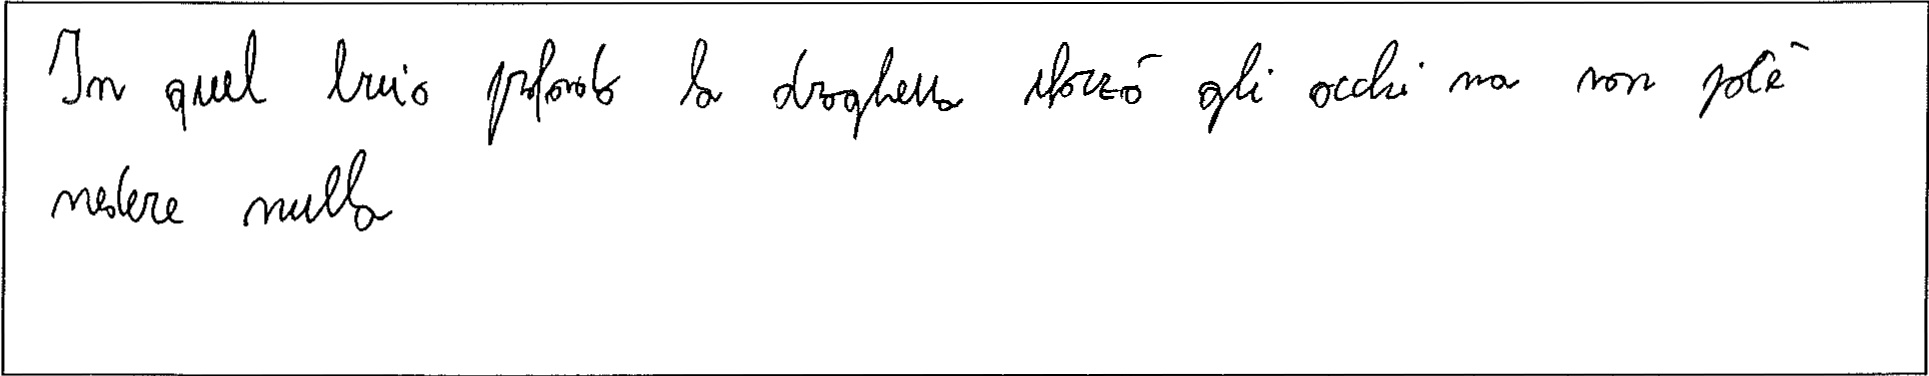 In quel buio profondo la draghetta sforzò gli occhi ma non potè
vedere nulla